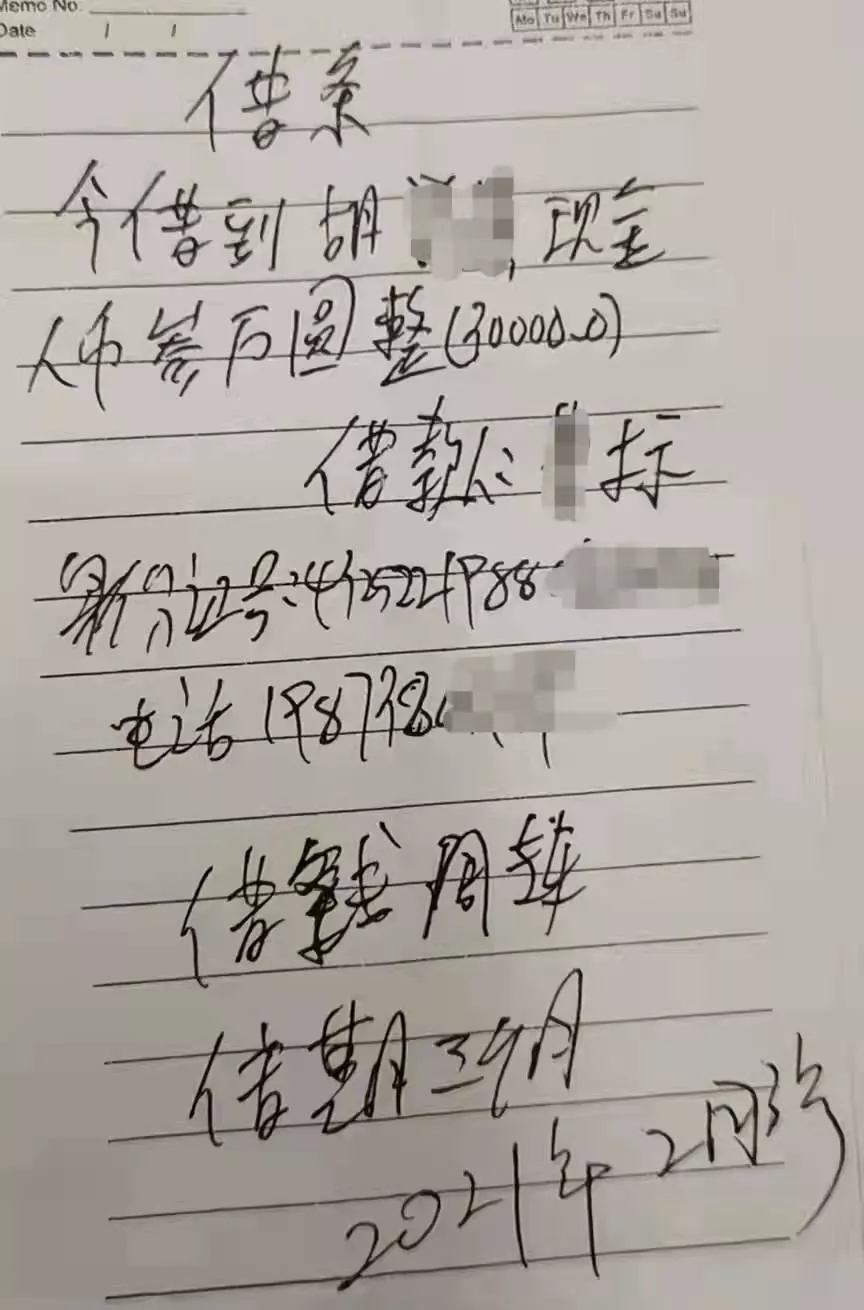 Memo No.
Mo Tu We Th Fr Sa Su
Date / /
借条
今借到胡 , 现金
人币叁万圆整(30000.0)
借款人: 标
身份证号: 4125221988
电话 198738
借钱周转
借期三个月
2021年2月3号